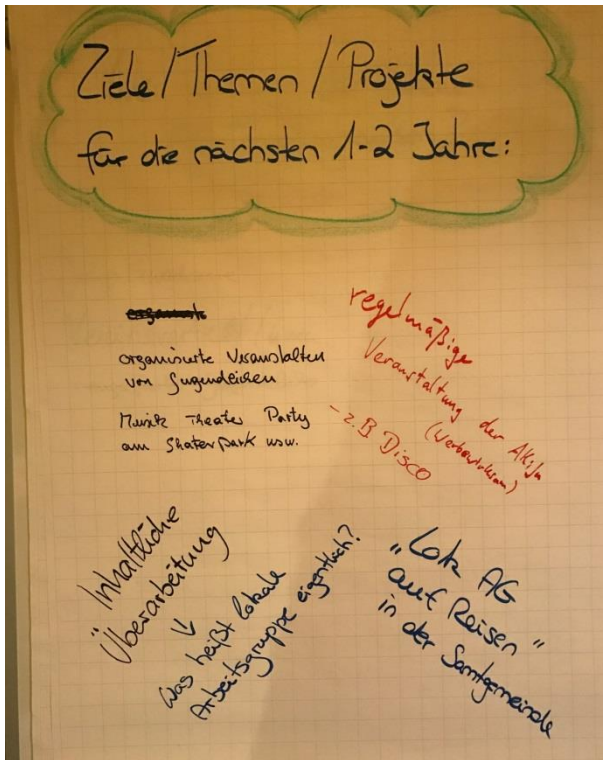 Ziele/Themen/Projekte
für die nächsten 1-2 Jahre:
organisierte Veranstalten
von Jugendlichen
Musik Theater Party
am Skaterpark usw.
regelmäßige
Veranstaltung der AKiJu
(Werbewirksam)
- z.B Disco
Inhaltliche
Überarbeitung
↓
Was heißt lokale
Arbeitsgruppe eigentlich?
"Lok AG
auf Reisen"
in der Samtgemeinde